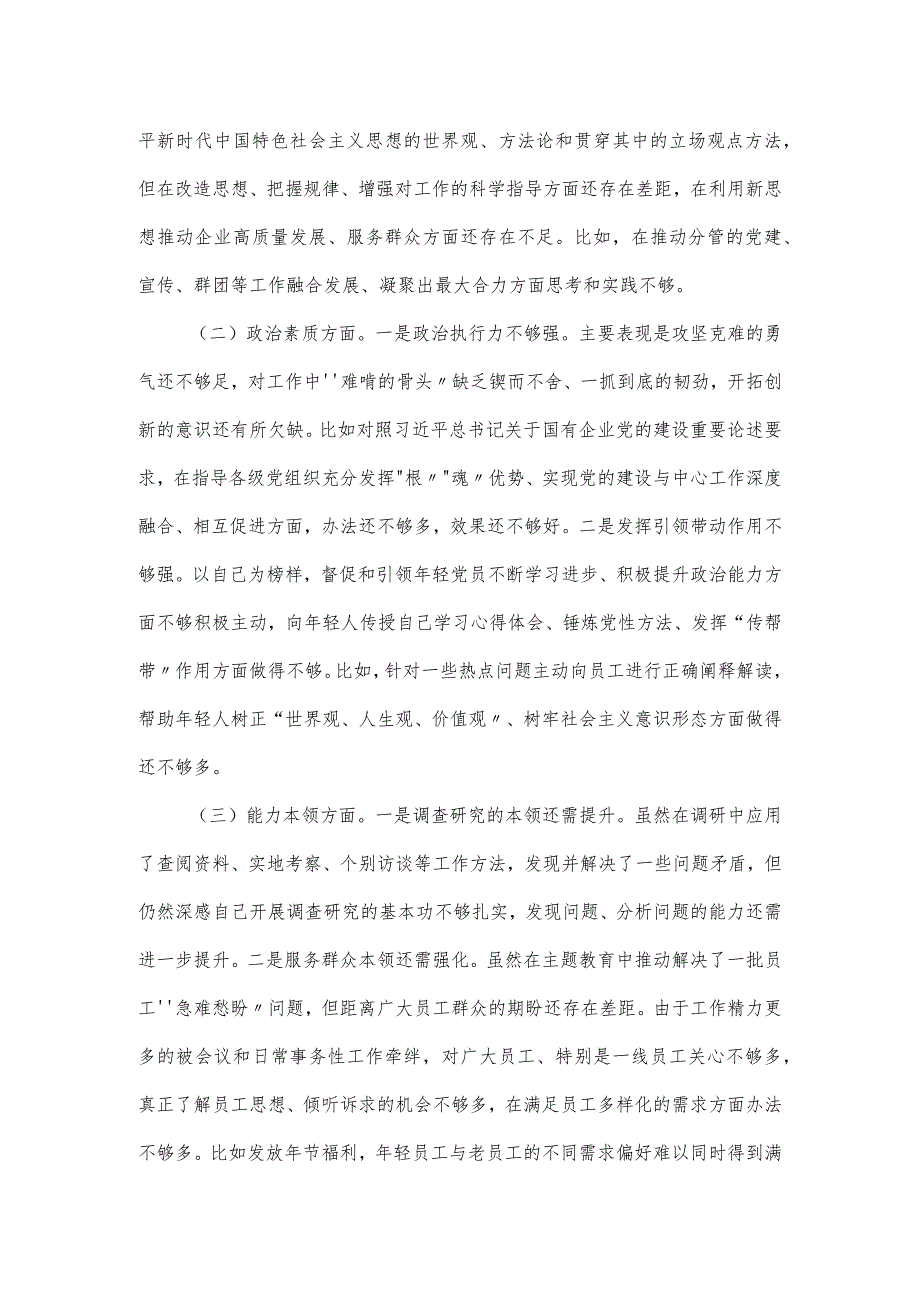 平新时代中国特色社会主义思想的世界观、方法论和贯穿其中的立场观点方法，
但在改造思想、把握规律、增强对工作的科学指导方面还存在差距，在利用新思
想推动企业高质量发展、服务群众方面还存在不足。比如，在推动分管的党建、
宣传、群团等工作融合发展、凝聚出最大合力方面思考和实践不够。
（二）政治素质方面。一是政治执行力不够强。主要表现是攻坚克难的勇
气还不够足，对工作中''难啃的骨头〃缺乏锲而不舍、一抓到底的韧劲，开拓创
新的意识还有所欠缺。比如对照习近平总书记关于国有企业党的建设重要论述要
求，在指导各级党组织充分发挥"根〃"魂〃优势、实现党的建设与中心工作深度
融合、相互促进方面，办法还不够多，效果还不够好。二是发挥引领带动作用不
够强。以自己为榜样，督促和引领年轻党员不断学习进步、积极提升政治能力方
面不够积极主动，向年轻人传授自己学习心得体会、锤炼党性方法、发挥“传帮
带〃作用方面做得不够。比如，针对一些热点问题主动向员工进行正确阐释解读，
帮助年轻人树正“世界观、人生观、价值观〃、树牢社会主义意识形态方面做得
还不够多。
（三）能力本领方面。一是调查研究的本领还需提升。虽然在调研中应用
了查阅资料、实地考察、个别访谈等工作方法，发现并解决了一些问题矛盾，但
仍然深感自己开展调查研究的基本功不够扎实，发现问题、分析问题的能力还需
进一步提升。二是服务群众本领还需强化。虽然在主题教育中推动解决了一批员
工''急难愁盼〃问题，但距离广大员工群众的期盼还存在差距。由于工作精力更
多的被会议和日常事务性工作牵绊，对广大员工、特别是一线员工关心不够多，
真正了解员工思想、倾听诉求的机会不够多，在满足员工多样化的需求方面办法
不够多。比如发放年节福利，年轻员工与老员工的不同需求偏好难以同时得到满